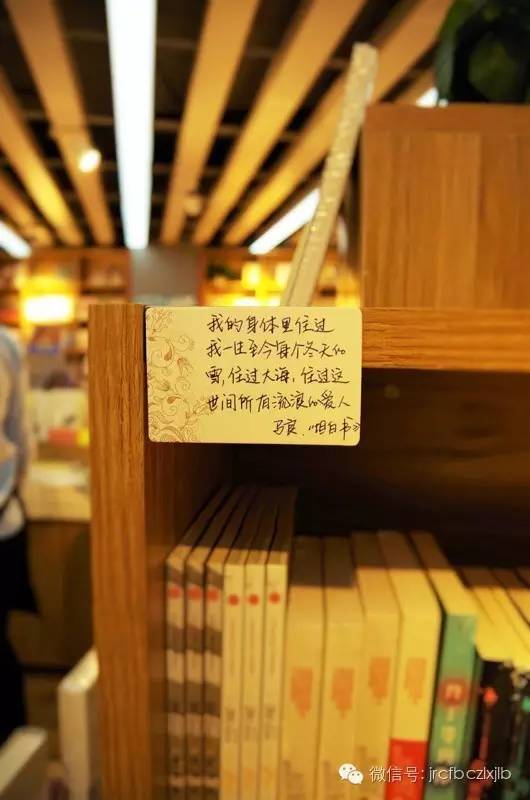 我的身体里住过
我一生至今每个冬天的
雪,住过大海,住过这
世间所有流浪的爱人
马良《坦白书》
微信号: jrcfbczlxjlb